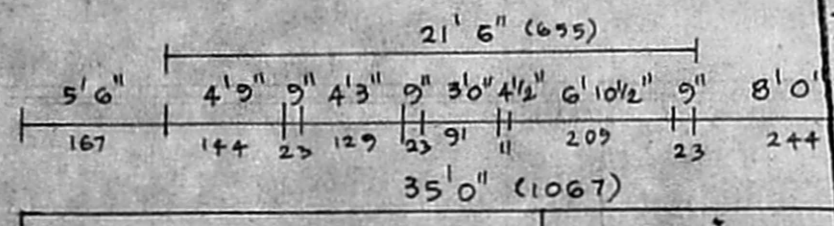 21' 6" (655)
5' 6" 4' 9" 9" 4' 3" 9" 3' 0" 4 1/2" 6' 10 1/2" 9" 8' 0"
167 144 23 129 23 91 11 209 23 244
35' 0" (1067)